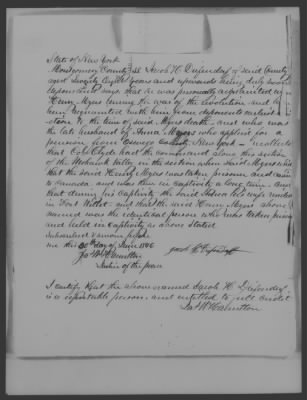 State of New York
Montgomery County SS Jacob H. Diefendorf of said County
aged Seventy Eight years and upwards being duly sworn
deposeth and says that he was personally acquainted with
Henry Myers during the war of the revolution and has
been acquainted with him from deponents earliest
to the time of said Myers death - and who was
the late husband of Anna Myers who applied for a
pension from Oswego County New York - recollects
that Col Clyde had the command along this section
of the Mohawk Valley in the section when said Myers
that the said Henry Myers was taken prisoner and carried
to Canada and was then in captivity a long time - and
that during his captivity the said Anna his wife resided
in Fort Willet - and that the said Henry Myers above
named was the identical person who was taken prisoner
and held in captivity as above stated
Subscribed & sworn before
me this 30th day of June 1846
Jas W Hamilton
Justice of the peace
Jacob H Diefendorff
I certify that the above named Jacob H. Diefendorf
is a reputable person, and entitled to full credit
Jas W Hamilton